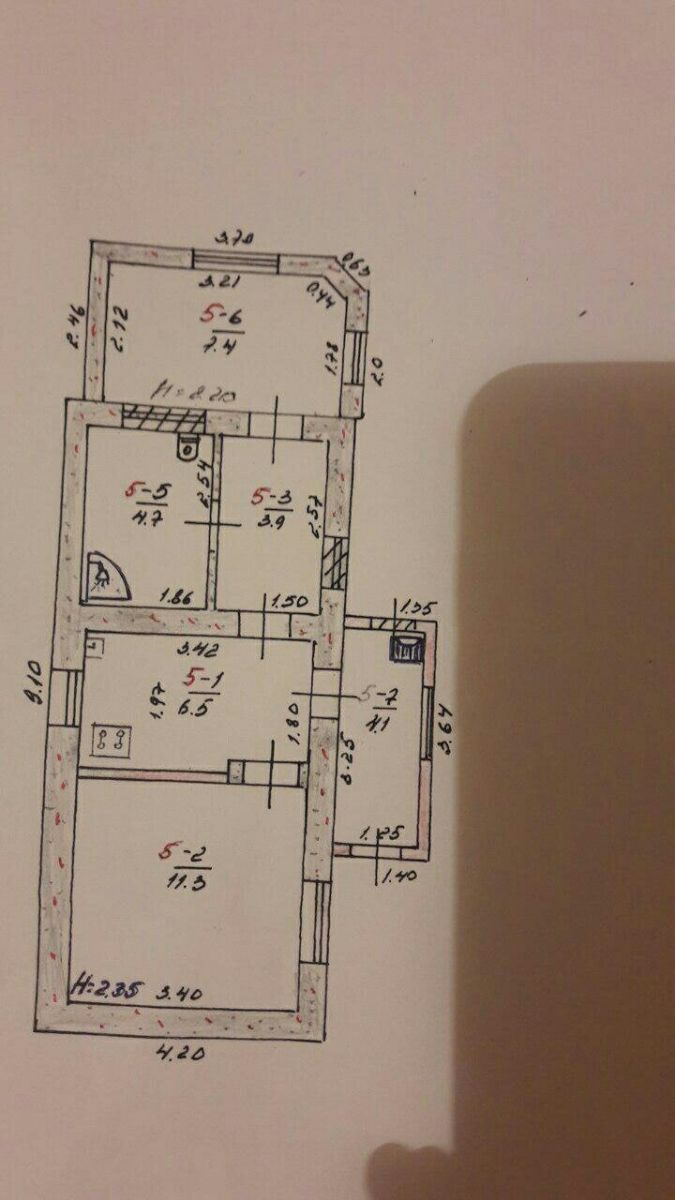 3.70
0.63
3.21
0.44
2.46
2.12
5-6
7.4
1.78
2.0
H=2.20
2.54
5-5
4.7
5-3
3.9
2.57
1.86
1.50
1.35
3.42
9.10
1.97
5-1
6.5
1.80
5-7
4.1
3.25
3.64
1.25
1.40
5-2
11.3
H=2.35
3.40
4.20